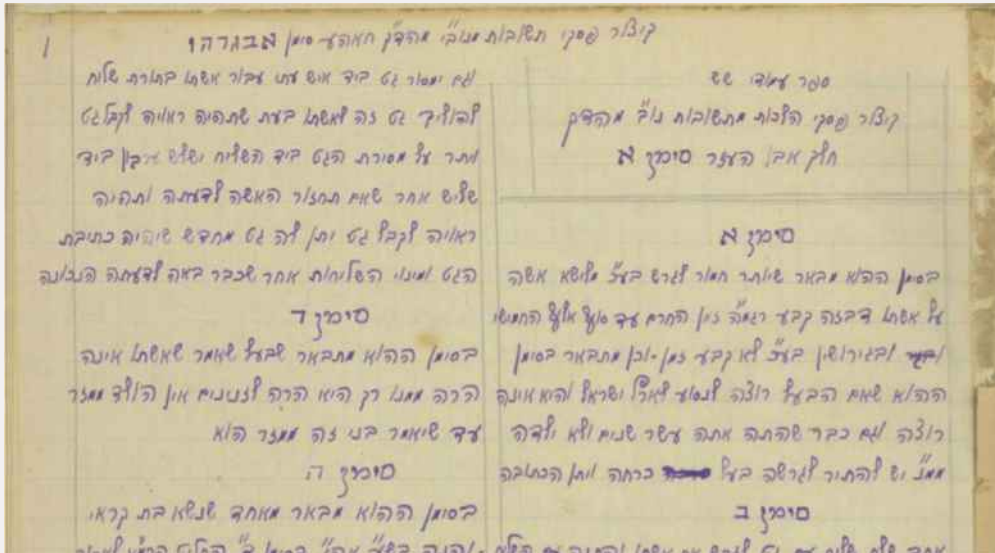 קיצור פסקי תשובות מנוב״י מהד״ק חאהע״ סימן אבגדהו
ספר עמודי שש
קיצור פסקי הלכות מתשובות נוב״י מהד״ק
חלק אבן העזר סימן א
סימן א
בסימן ההוא מבאר שיותר חמור לגרש בע״כ מלישא אשה
על אשתו דבזה קבע רגמ״ה זמן החרם עד סוף אלף החמישי
ובגירושין בע״כ לא קבע זמן וכן מתבאר בסימן
ההוא שאם הבעל רוצה לנסוע לארץ ישראל והיא אינה
רוצה וגם כבר שהתה אתה עשר שנים ולא ילדה
ממנו יש להתיר לגרשה בעל כרחה ויתן הכתובה
סימן ב
וגם ימסור גט ביד איש עתי עבור אשתו בתורת שליח
להוליך גט זה לאשתו בעת שתהיה ראויה לקבל גט
ויתר על מסירת הגט ביד השליח ישליש ביד
שליש אחר שאם תחזור האשה לדעתה ותהיה
ראויה לקבל גט יתן לה גט מחדש שיהיה כתיבת
הגט ומינוי השליחות אחר שכבר באה לדעתה הנכונה
סימן ד
בסימן ההוא מתבאר שבעל שאמר שאשתו אינה
הרה ממנו רק היא הרה לזנונים אין הולד ממזר
עד שיאמר בני זה ממזר הוא
סימן ה
בסימן ההוא מבאר מאחד שנשא בת קראי